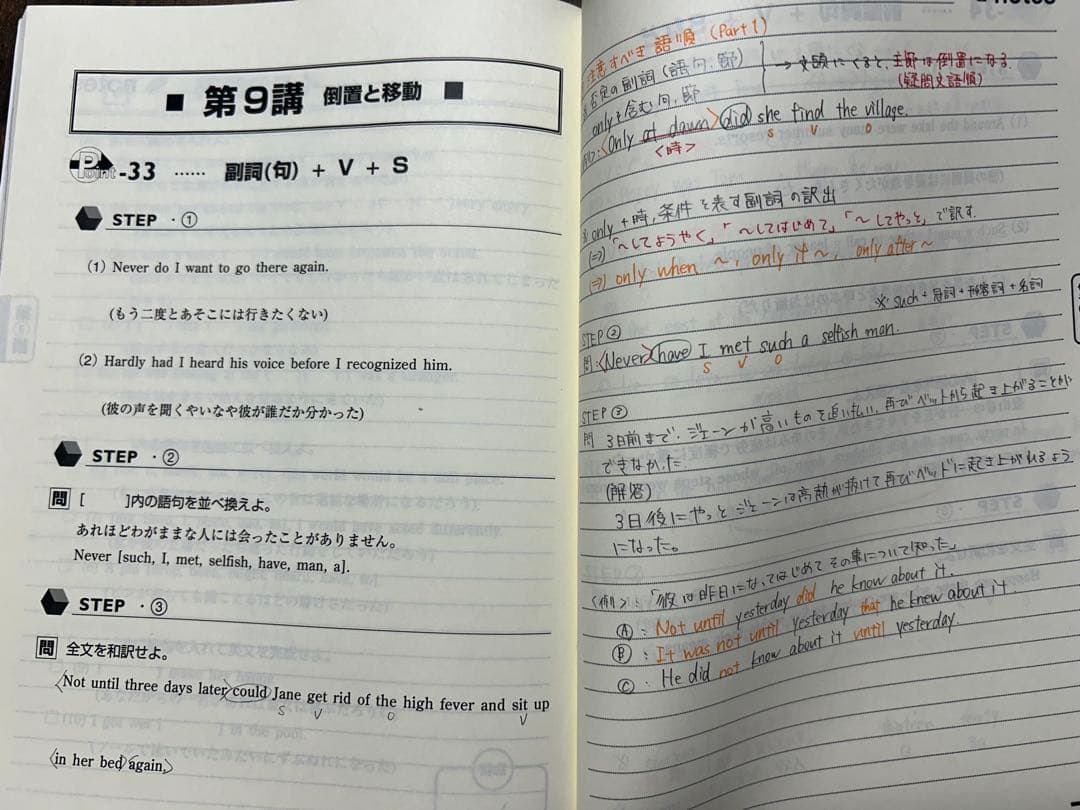 ■ 第9講 倒置と移動 ■
Point-33 …… 副詞(句) + V + S
STEP ・①
(1) Never do I want to go there again.
(もう二度とあそこには行きたくない)
(2) Hardly had I heard his voice before I recognized him.
(彼の声を聞くやいなや彼が誰だか分かった)
STEP ・②
問 [ ]内の語句を並べ換えよ。
あれほどわがままな人には会ったことがありません。
Never [such, I, met, selfish, have, man, a].
STEP ・③
問 全文を和訳せよ。
〈Not until three days later〉could Jane get rid of the high fever and sit up
S V O V
〈in her bed〉〈again.〉
notes
注意すべき語順 (Part 1)
否定の副詞(語句、節)
only+含む句、節
→ 文頭にくると、主節は倒置になる。
(疑問文語順)
例):〈Only at dawn〉did she find the village.
<時> S V O
※only+時,条件を表す副詞の訳出
(⇒)「〜してようやく」「〜してはじめて」「〜してやっと」で訳す。
(⇒) only when 〜, only if 〜, only after 〜
※such+冠詞+形容詞+名詞
STEP②
問:〈Never〉have I met such a selfish man.
S V O
STEP③
問 3日前まで、ジェーンが高いものを追い払い、再びベットから起き上がることが
できなかった
(解答)
3日後にやっとジェーンは高熱が抜けて再びベッドに起き上がれるよう
になった。
〈例〉:「彼は昨日になってはじめてその事について知った」
Ⓐ: Not until yesterday did he know about it.
Ⓑ: It was not until yesterday that he knew about it.
Ⓒ: He did not know about it until yesterday.